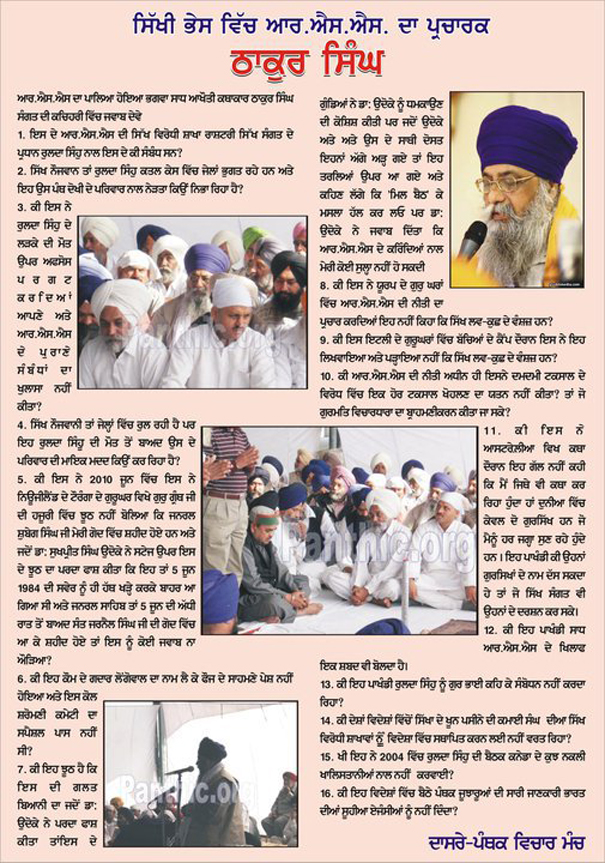 ਸਿੱਖੀ ਭੇਸ ਵਿੱਚ ਆਰ.ਐਸ.ਐਸ. ਦਾ ਪ੍ਰਚਾਰਕ
ਠਾਕੁਰ ਸਿੰਘ
ਆਰ.ਐਸ.ਐਸ ਦਾ ਪਾਲਿਆ ਹੋਇਆ ਭਗਵਾ ਸਾਧ ਆਖੌਤੀ ਕਥਾਕਾਰ ਠਾਕੁਰ ਸਿੰਘ
ਸੰਗਤ ਦੀ ਕਚਿਹਰੀ ਵਿੱਚ ਜਵਾਬ ਦੇਵੇ
1. ਇਸ ਦੇ ਆਰ.ਐਸ.ਐਸ ਦੀ ਸਿੱਖ ਵਿਰੋਧੀ ਸ਼ਾਖਾ ਰਾਸ਼ਟਰੀ ਸਿੱਖ ਸੰਗਤ ਦੇ
ਪ੍ਰਧਾਨ ਰੁਲਦਾ ਸਿੰਹੁ ਨਾਲ ਇਸ ਦੇ ਕੀ ਸੰਬੰਧ ਸਨ?
2. ਸਿੱਖ ਨੌਜਵਾਨ ਤਾਂ ਰੁਲਦਾ ਸਿੰਹੁ ਕਤਲ ਕੇਸ ਵਿੱਚ ਜੇਲਾਂ ਭੁਗਤ ਰਹੇ ਹਨ ਅਤੇ
ਇਹ ਉਸ ਪੰਥ ਦੋਖੀ ਦੇ ਪਰਿਵਾਰ ਨਾਲ ਨੇੜਤਾ ਕਿਉਂ ਨਿਭਾ ਰਿਹਾ ਹੈ?
3. ਕੀ ਇਸ ਨੇ
ਰੁਲਦਾ ਸਿੰਹੁ ਦੇ
ਲੜਕੇ ਦੀ ਮੌਤ
ਉਪਰ ਅਫਸੋਸ
ਪਰਗਟ
ਕਰਦਿਆਂ
ਆਪਣੇ ਅਤੇ
ਆਰ.ਐਸ.ਐਸ
ਦੇ ਪੁਰਾਣੇ
ਸੰਬੰਧਾਂ ਦਾ
ਖੁਲਾਸਾ ਨਹੀਂ
ਕੀਤਾ?
4. ਸਿੱਖ ਨੌਜਵਾਨੀ ਤਾਂ ਜੇਲ੍ਹਾਂ ਵਿੱਚ ਰੁਲ ਰਹੀ ਹੈ ਪਰ
ਇਹ ਰੁਲਦਾ ਸਿੰਹੁ ਦੀ ਮੌਤ ਤੋਂ ਬਾਅਦ ਉਸ ਦੇ
ਪਰਿਵਾਰ ਦੀ ਮਾਇਕ ਮਦਦ ਕਿਉਂ ਕਰ ਰਿਹਾ ਹੈ?
5. ਕੀ ਇਸ ਨੇ 2010 ਜੂਨ ਵਿੱਚ ਇਸ ਨੇ
ਨਿਊਜੀਲੈਂਡ ਦੇ ਟੌਰੰਗਾ ਦੇ ਗੁਰੂਘਰ ਵਿਖੇ ਗੁਰੂ ਗ੍ਰੰਥ ਜੀ
ਦੀ ਹਜ਼ੂਰੀ ਵਿੱਚ ਝੂਠ ਨਹੀਂ ਬੋਲਿਆ ਕਿ ਜਨਰਲ
ਸ਼ੁਬੇਗ ਸਿੰਘ ਜੀ ਮੇਰੀ ਗੋਦ ਵਿੱਚ ਸ਼ਹੀਦ ਹੋਏ ਹਨ ਅਤੇ
ਜਦੋਂ ਡਾ: ਸੁਖਪ੍ਰੀਤ ਸਿੰਘ ਉਦੋਕੇ ਨੇ ਸਟੇਜ ਉਪਰ ਇਸ
ਦੇ ਝੂਠ ਦਾ ਪਰਦਾ ਫਾਸ਼ ਕੀਤਾ ਕਿ ਇਹ ਤਾਂ 5 ਜੂਨ
1984 ਦੀ ਸਵੇਰ ਨੂੰ ਹੀ ਹੱਥ ਖੜ੍ਹੇ ਕਰਕੇ ਬਾਹਰ ਆ
ਗਿਆ ਸੀ ਅਤੇ ਜਨਰਲ ਸਾਹਿਬ ਤਾਂ 5 ਜੂਨ ਦੀ ਅੱਧੀ
ਰਾਤ ਤੋਂ ਬਾਅਦ ਸੰਤ ਜਰਨੈਲ ਸਿੰਘ ਜੀ ਦੀ ਗੋਦ ਵਿੱਚ
ਆ ਕੇ ਸ਼ਹੀਦ ਹੋਏ ਤਾਂ ਇਸ ਨੂੰ ਕੋਈ ਜਵਾਬ ਨਾ
ਔੜਿਆ?
6. ਕੀ ਇਹ ਕੌਮ ਦੇ ਗਦਾਰ ਲੌਂਗੋਵਾਲ ਦਾ ਨਾਮ ਲੈ ਕੇ ਫੌਜ ਦੇ ਸਾਹਮਣੇ ਪੇਸ਼ ਨਹੀਂ
ਹੋਇਆ ਅਤੇ ਇਸ ਕੋਲ
ਸ਼ਰੋਮਣੀ ਕਮੇਟੀ ਦਾ
ਸਪੈਸ਼ਲ ਪਾਸ ਨਹੀਂ
ਸੀ?
7. ਕੀ ਇਹ ਝੂਠ ਹੈ ਕਿ
ਇਸ ਦੀ ਗਲਤ
ਬਿਆਨੀ ਦਾ ਜਦੋਂ ਡਾ:
ਉਦੋਕੇ ਨੇ ਪਰਦਾ ਫਾਸ਼
ਕੀਤਾ ਤਾਂਇਸ ਦੇ
ਗੁੰਡਿਆਂ ਨੇ ਡਾ: ਉਦੋਕੇ ਨੂੰ ਧਮਕਾਉਣ
ਦੀ ਕੋਸ਼ਿਸ਼ ਕੀਤੀ ਪਰ ਜਦੋਂ ਉਦੋਕੇ
ਅਤੇ ਅਤੇ ਉਸ ਦੇ ਸਾਥੀ ਦੋਸਤ
ਇਹਨਾਂ ਅੱਗੇ ਅੜ੍ਹ ਗਏ ਤਾਂ ਇਹ
ਤਰਲਿਆਂ ਉਪਰ ਆ ਗਏ ਅਤੇ
ਕਹਿਣ ਲੱਗੇ ਕਿ 'ਮਿਲ ਬੈਠ' ਕੇ
ਮਸਲਾ ਹੱਲ ਕਰ ਲਓ ਪਰ ਡਾ:
ਉਦੋਕੇ ਨੇ ਜਵਾਬ ਦਿੱਤਾ ਕਿ
ਆਰ.ਐਸ.ਐਸ ਦੇ ਕਰਿੰਦਿਆਂ ਨਾਲ
ਮੇਰੀ ਕੋਈ ਸੁਲ੍ਹਾ ਨਹੀਂ ਹੋ ਸਕਦੀ
8. ਕੀ ਇਸ ਨੇ ਯੂਰਪ ਦੇ ਗੁਰੂ ਘਰਾਂ
ਵਿੱਚ ਆਰ.ਐਸ.ਐਸ ਦੀ ਨੀਤੀ ਦਾ
ਪ੍ਰਚਾਰ ਕਰਦਿਆਂ ਇਹ ਨਹੀਂ ਕਿਹਾ ਕਿ ਸਿੱਖ ਲਵ-ਕੁਛ ਦੇ ਵੰਸ਼ਜ਼ ਹਨ?
9. ਕੀ ਇਸ ਇਟਲੀ ਦੇ ਗੁਰੂਘਰਾਂ ਵਿੱਚ ਬੱਚਿਆਂ ਦੇ ਕੈਂਪ ਦੌਰਾਨ ਇਸ ਨੇ ਇਹ
ਲਿਖਵਾਇਆ ਅਤੇ ਪੜ੍ਹਾਇਆ ਨਹੀਂ ਕਿ ਸਿੱਖ ਲਵ-ਕੁਛ ਦੇ ਵੰਸ਼ਜ਼ ਹਨ?
10. ਕੀ ਆਰ.ਐਸ.ਐਸ ਦੀ ਨੀਤੀ ਅਧੀਨ ਹੀ ਇਸਨੇ ਦਮਦਮੀ ਟਕਸਾਲ ਦੇ
ਵਿਰੋਧ ਵਿੱਚ ਇਕ ਹੋਰ ਟਕਸਾਲ ਖੋਹਲਣ ਦਾ ਯਤਨ ਨਹੀਂ ਕੀਤਾ? ਤਾਂ ਜੋ
ਗੁਰਮਤਿ ਵਿਚਾਰਧਾਰਾ ਦਾ ਬ੍ਰਾਹਮਣੀਕਰਨ ਕੀਤਾ ਜਾ ਸਕੇ?
11. ਕੀ ਇਸ ਨੇ
ਆਸਟਰੇਲੀਆ ਵਿਖ ਕਥਾ
ਦੌਰਾਨ ਇਹ ਗੱਲ ਨਹੀਂ ਕਹੀ
ਕਿ ਮੈਂ ਜਿਥੇ ਵੀ ਕਥਾ ਕਰ
ਰਿਹਾ ਹੁੰਦਾ ਹਾਂ ਦੁਨੀਆ ਵਿੱਚ
ਕੇਵਲ ਦੋ ਗੁਰਸਿੱਖ ਹਨ ਜੋ
ਮੈਨੂੰ ਹਰ ਜਗ੍ਹਾ ਸੁਣ ਰਹੇ ਹੁੰਦੇ
ਹਨ । ਇਹ ਪਾਖੰਡੀ ਕੀ ਉਹਨਾਂ
ਗੁਰਸਿਖਾਂ ਦੇ ਨਾਮ ਦੱਸ ਸਕਦਾ
ਹੈ ਤਾਂ ਜੋ ਸਿੱਖ ਸੰਗਤ ਵੀ
ਉਹਨਾਂ ਦੇ ਦਰਸ਼ਨ ਕਰ ਸਕੇ।
12. ਕੀ ਇਹ ਪਾਖੰਡੀ ਸਾਧ
ਆਰ.ਐਸ.ਐਸ ਦੇ ਖਿਲਾਫ
ਇਕ ਸ਼ਬਦ ਵੀ ਬੋਲਦਾ ਹੈ।
13. ਕੀ ਇਹ ਪਾਖੰਡੀ ਰੁਲਦਾ ਸਿੰਹੁ ਨੂੰ ਗੁਰ ਭਾਈ ਕਹਿ ਕੇ ਸੰਬੋਧਨ ਨਹੀਂ ਕਰਦਾ
ਰਿਹਾ?
14. ਕੀ ਦੇਸ਼ਾਂ ਵਿਦੇਸ਼ਾਂ ਵਿੱਚੋਂ ਸਿੱਖਾਂ ਦੇ ਖੂਨ ਪਸੀਨੇ ਦੀ ਕਮਾਈ ਸੰਘ ਦੀਆ ਸਿੱਖ
ਵਿਰੋਧੀ ਸ਼ਾਖਾਵਾਂ ਨੂੰ ਵਿਦੇਸ਼ਾ ਵਿੱਚ ਸਥਾਪਿਤ ਕਰਨ ਲਈ ਨਹੀਂ ਵਰਤ ਰਿਹਾ?
15. ਖੀ ਇਹ ਨੇ 2004 ਵਿੱਚ ਰੁਲਦਾ ਸਿੰਹੁ ਦੀ ਬੈਠਕ ਕਨੇਡਾ ਦੇ ਕੁਝ ਨਕਲੀ
ਖਾਲਿਸਤਾਨੀਆਂ ਨਾਲ ਨਹੀਂ ਕਰਵਾਈ?
16. ਕੀ ਇਹ ਵਿਦੇਸ਼ਾਂ ਵਿੱਚ ਬੈਠੇ ਪੰਥਕ ਜੁਝਾਰੂਆਂ ਦੀ ਸਾਰੀ ਜਾਣਕਾਰੀ ਭਾਰਤ
ਦੀਆਂ ਸੂਹੀਆ ਏਜੰਸੀਆਂ ਨੂੰ ਨਹੀਂ ਦਿੰਦਾ?
ਦਾਸਰੇ-ਪੰਥਕ ਵਿਚਾਰ ਮੰਚ
Panthic.org
Panthic.org
Panthic.org